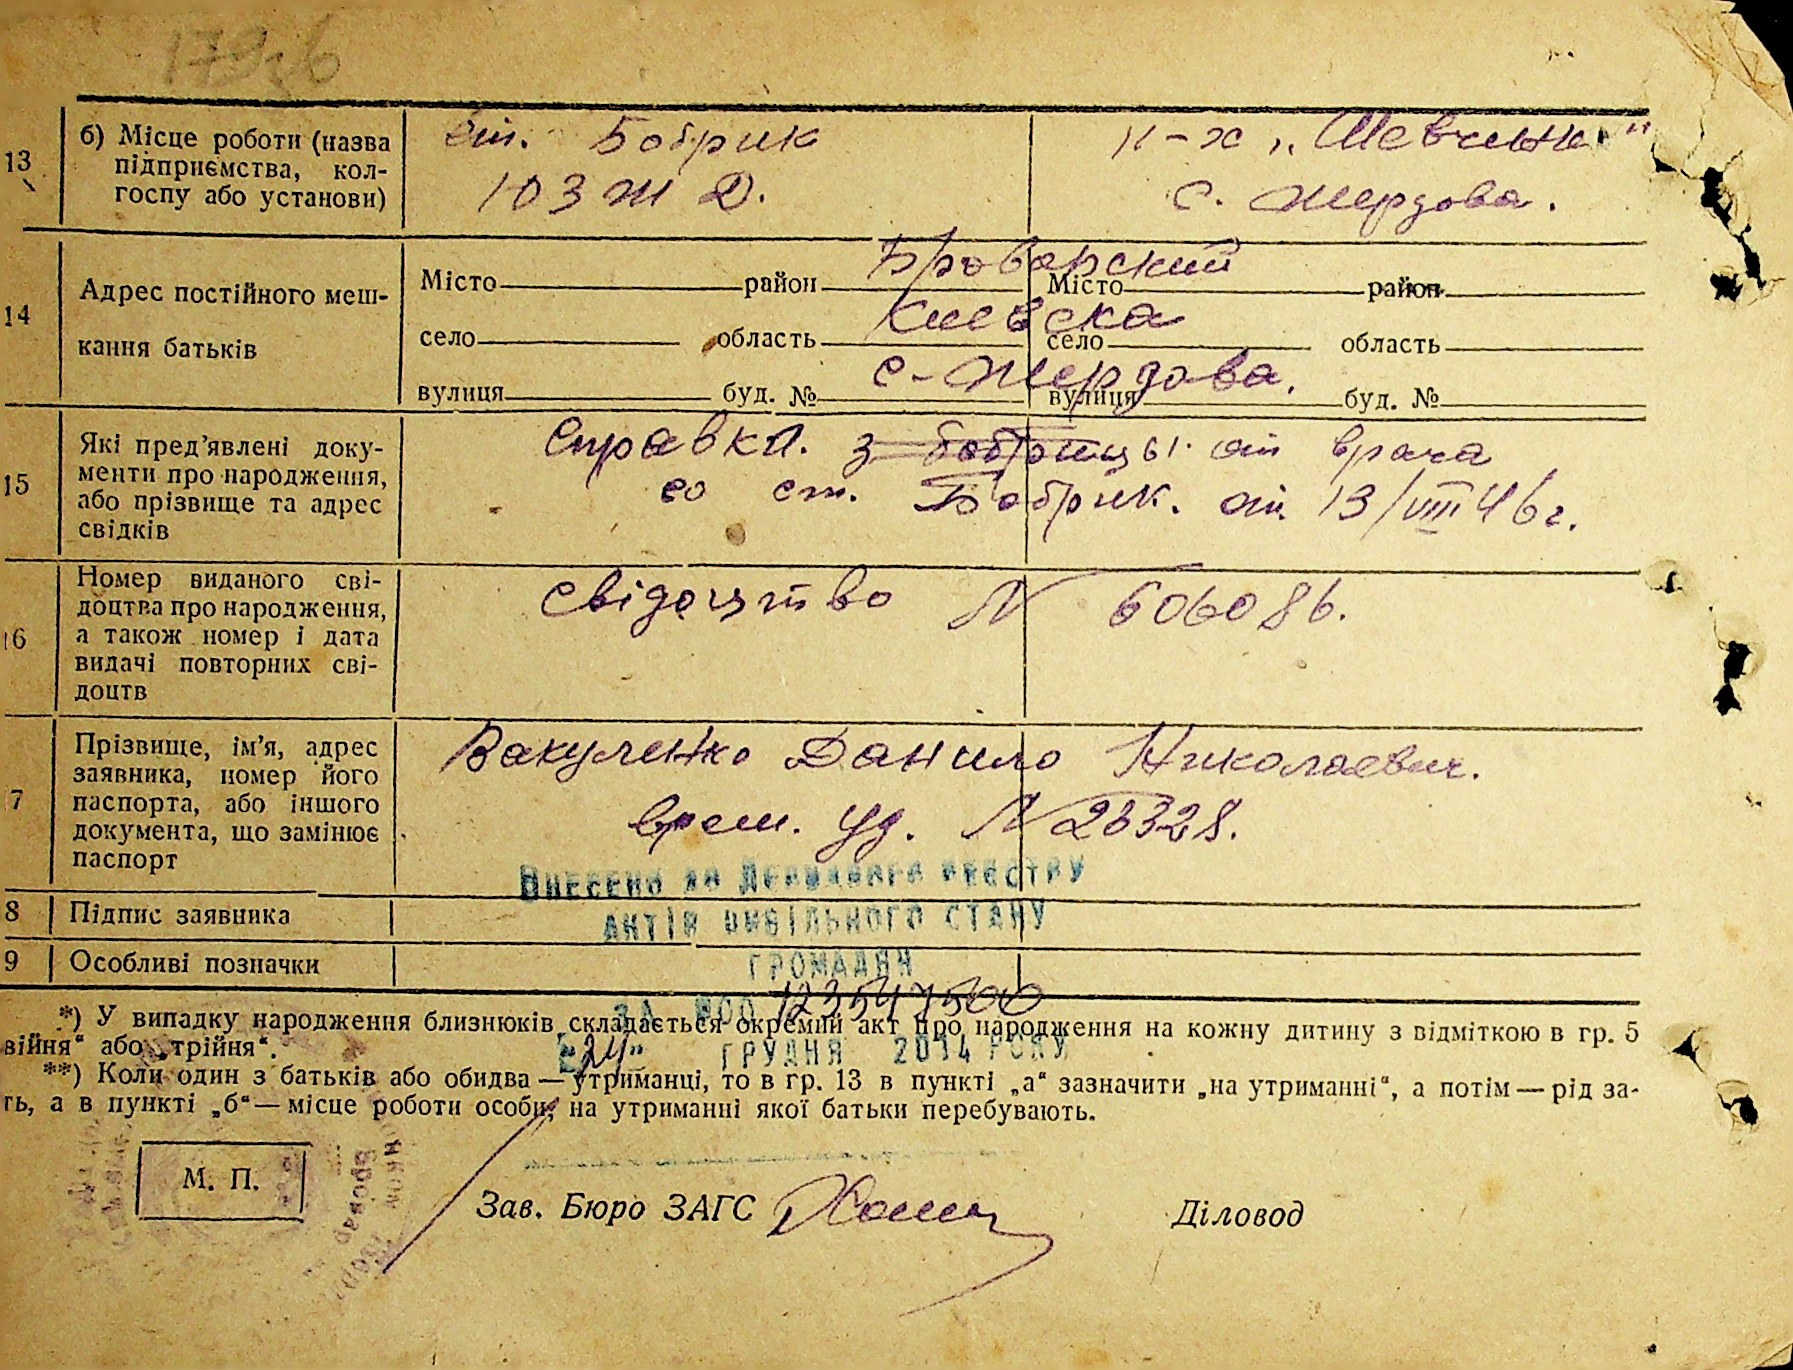 13 б) Місце роботи (назва
підприємства, кол-
госпу або установи)
ст. Бобрик
103 ж д.
к-х „Шевченк "
с. Жердова.
14 Адрес постійного меш-
кання батьків
Місто район Броварский Місто район
село область Киевска село область
вулиця буд. № с-Жердова. вулиця буд. №
15 Які пред’явлені доку-
менти про народження,
або прізвище та адрес
свідків
Справка. з бобрицы. от врача
со ст. Бобрик. от. 13/VIII 46 г.
16 Номер виданого сві-
доцтва про народження,
а також номер і дата
видачі повторних сві-
доцтв
свідоцтво N 606086.
7 Прізвище, ім’я, адрес
заявника, номер його
паспорта, або іншого
документа, що замінює
паспорт
Вакуленко Данило Николаевич.
врем. уд. N 23328.
Внесено до Державного реєстру
8 Підпис заявника
актів цивільного стану
9 Особливі позначки
громадян
за №00 123547500
*) У випадку народження близнюків складається окремий акт про народження на кожну дитину з відміткою в гр. 5
війня“ або „трійня“.
"24" грудня 2014 року
**) Коли один з батьків або обидва — утриманці, то в гр. 13 в пункті „а“ зазначити „на утриманні“, а потім — рід за-
ть, а в пункті „б“ — місце роботи особи, на утриманні якої батьки перебувають.
М. П.
Зав. Бюро ЗАГС
Діловод